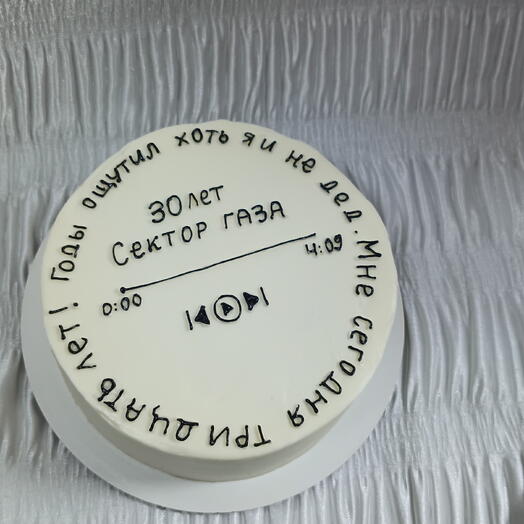 Годы ощутил хоть я и не дед. Мне сегодня тридцать лет!
30 лет
Сектор газа
0:00
4:09